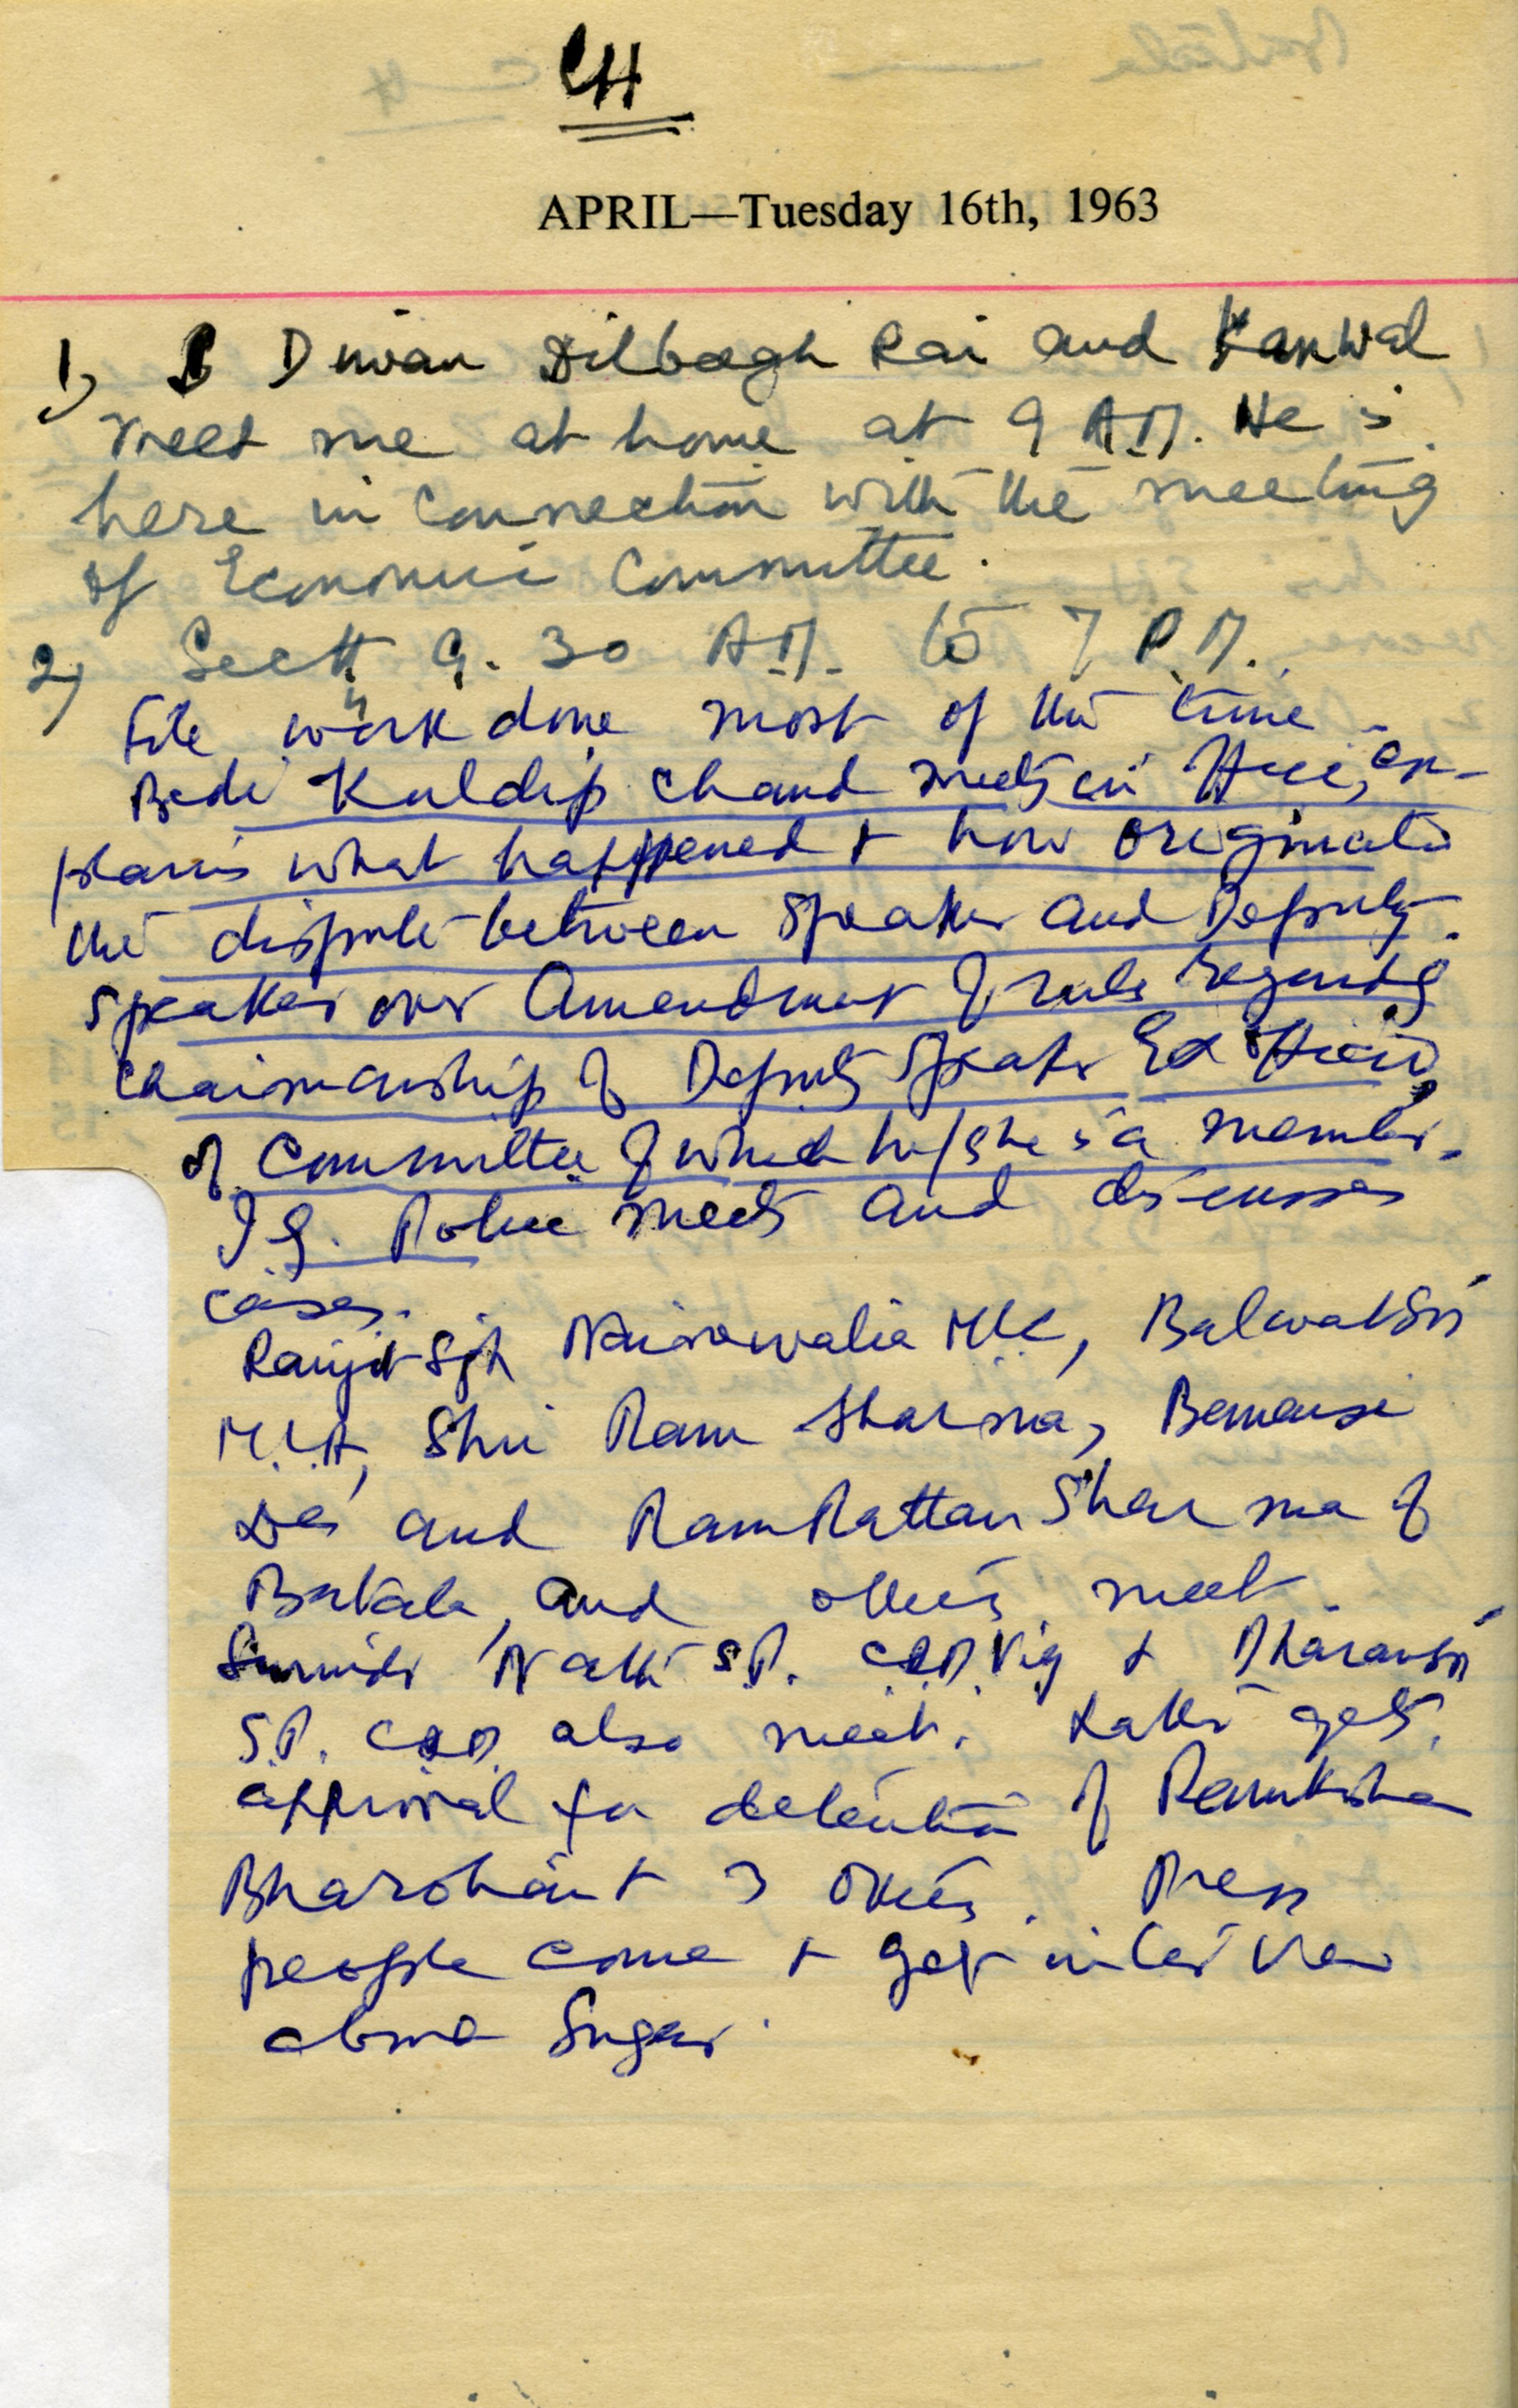 CH
APRIL—Tuesday 16th, 1963
1) Diwan Dilbagh Rai and Kanwal
meet me at home at 9 A.M. He is
here in connection with the meeting
of Economic Committee.
2) Sectt 9.30 A.M. to 7 P.M.
File work done most of the time.
Bedi Kuldip Chand meets in Office, ex-
plains what happened & how originated
the dispute between Speaker and Deputy
Speaker over Amendment of rule regarding
Chairmanship of Deputy Speaker Ex officio
of Committee of which he/she is a member.
I.G. Police meets and discusses
cases.
Ranjit Sgh Nainewalia MLC, Balwant Sgh
M.L.A, Shri Ram Sharma, Banarsi
Das and Ram Rattan Sharma of
Batala, and others meet.
Nath S.P. C.I.D. Vig &
S.P. CID also meet. gets
approval for detention of
& 3 others. Press
people come & get interview
about Sugar.